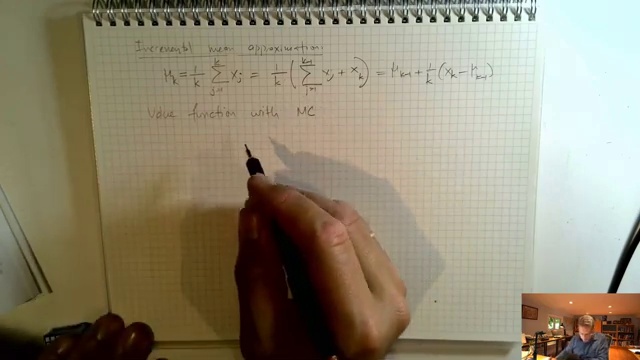 Incremental mean approximation:
μ_k = 1/k ∑_{j=1}^{k} x_j = 1/k (∑_{j=1}^{k-1} x_j + x_k) = μ_{k-1} + 1/k (x_k − μ_{k-1})
Value function with MC